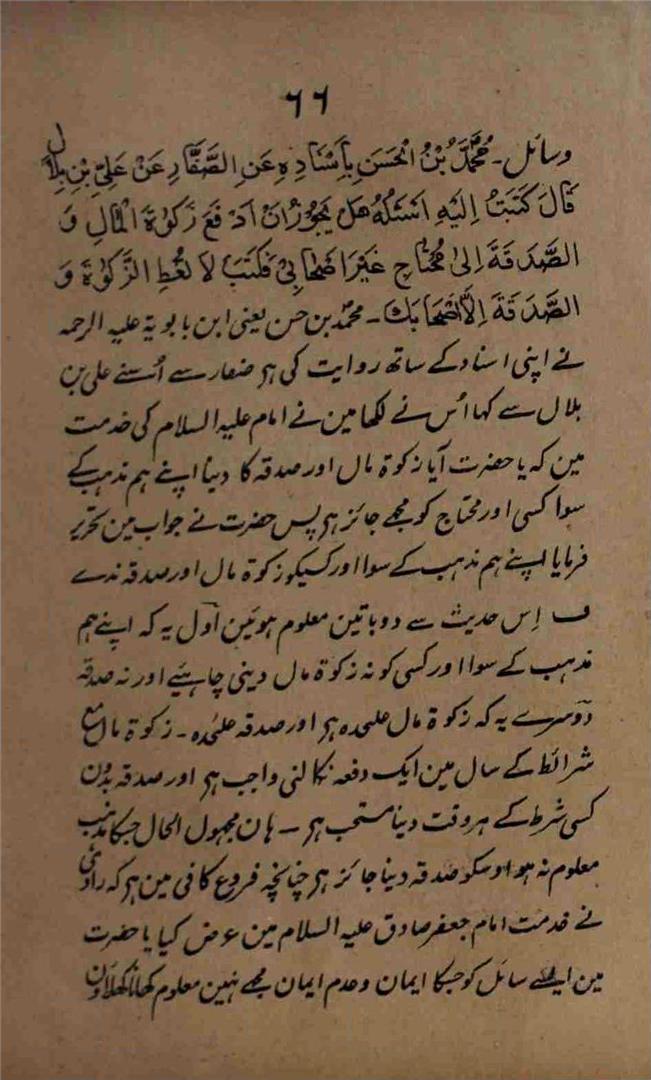 ٦٦
وسائل۔ مُحَمَّدُ بْنُ الْحَسَنِ بِاَسْنَادِهٖ عَنِ الصَّفَّارِ عَنْ عَلِیِّ بْنِ بِلَال
قَالَ كَتَبْتُ اِلَیْهِ اَسْئَلُهُ هَلْ یَجُوْزُ اَنْ اَدْفَعَ زَكٰوةَ الْمَالِ وَ
الصَّدَقَةَ اِلٰی مُحْتَاجٍ غَیْرِ اَصْحَابِیْ فَكَتَبَ لَا تُعْطِ الزَّكٰوةَ وَ
الصَّدَقَةَ اِلَّا اَصْحَابَكَ۔ محمد بن حسن یعنی ابن بابویہ علیہ الرحمہ
نے اپنی اسناد کے ساتھ روایت کی ہر صفار سے اُسنے علی بن
بلال سے کہا اُس نے لکھا مین نے امام علیہ السلام کی خدمت
مین کہ یا حضرت آیا زکوة مال اور صدقہ کا دینا اپنے ہم مذہب کے
سوا کسی اور محتاج کو مجھے جائز ہر پس حضرت نے جواب مین تحریر
فرمایا اپنے ہم مذہب کے سوا اور کسیکو زکوة مال اور صدقہ ندے
ف اِس حدیث سے دو باتین معلوم ہوئین اول یہ کہ اپنے ہم
مذہب کے سوا اور کسی کو نہ زکوة مال دینی چاہئیے اور نہ صدقہ
دوسرے یہ کہ زکوة مال علٰحدہ ہر اور صدقہ علٰحدہ۔ زکوة مال مع
شرائط کے سال مین ایک دفعہ نکالنی واجب ہر اور صدقہ بدون
کسی شرط کے ہر وقت دینا مستحب ہر ۔ ہان مجہول الحال جسکا مذہب
معلوم نہ ہو اوسکو صدقہ دینا جائز ہر چنانچہ فروع کافی مین ہر کہ راوی
نے خدمت امام جعفر صادق علیہ السلام مین عرض کیا یا حضرت
مین ایسے سائل کو جسکا ایمان و عدم ایمان مجھے نہین معلوم کھانا کھلاؤن